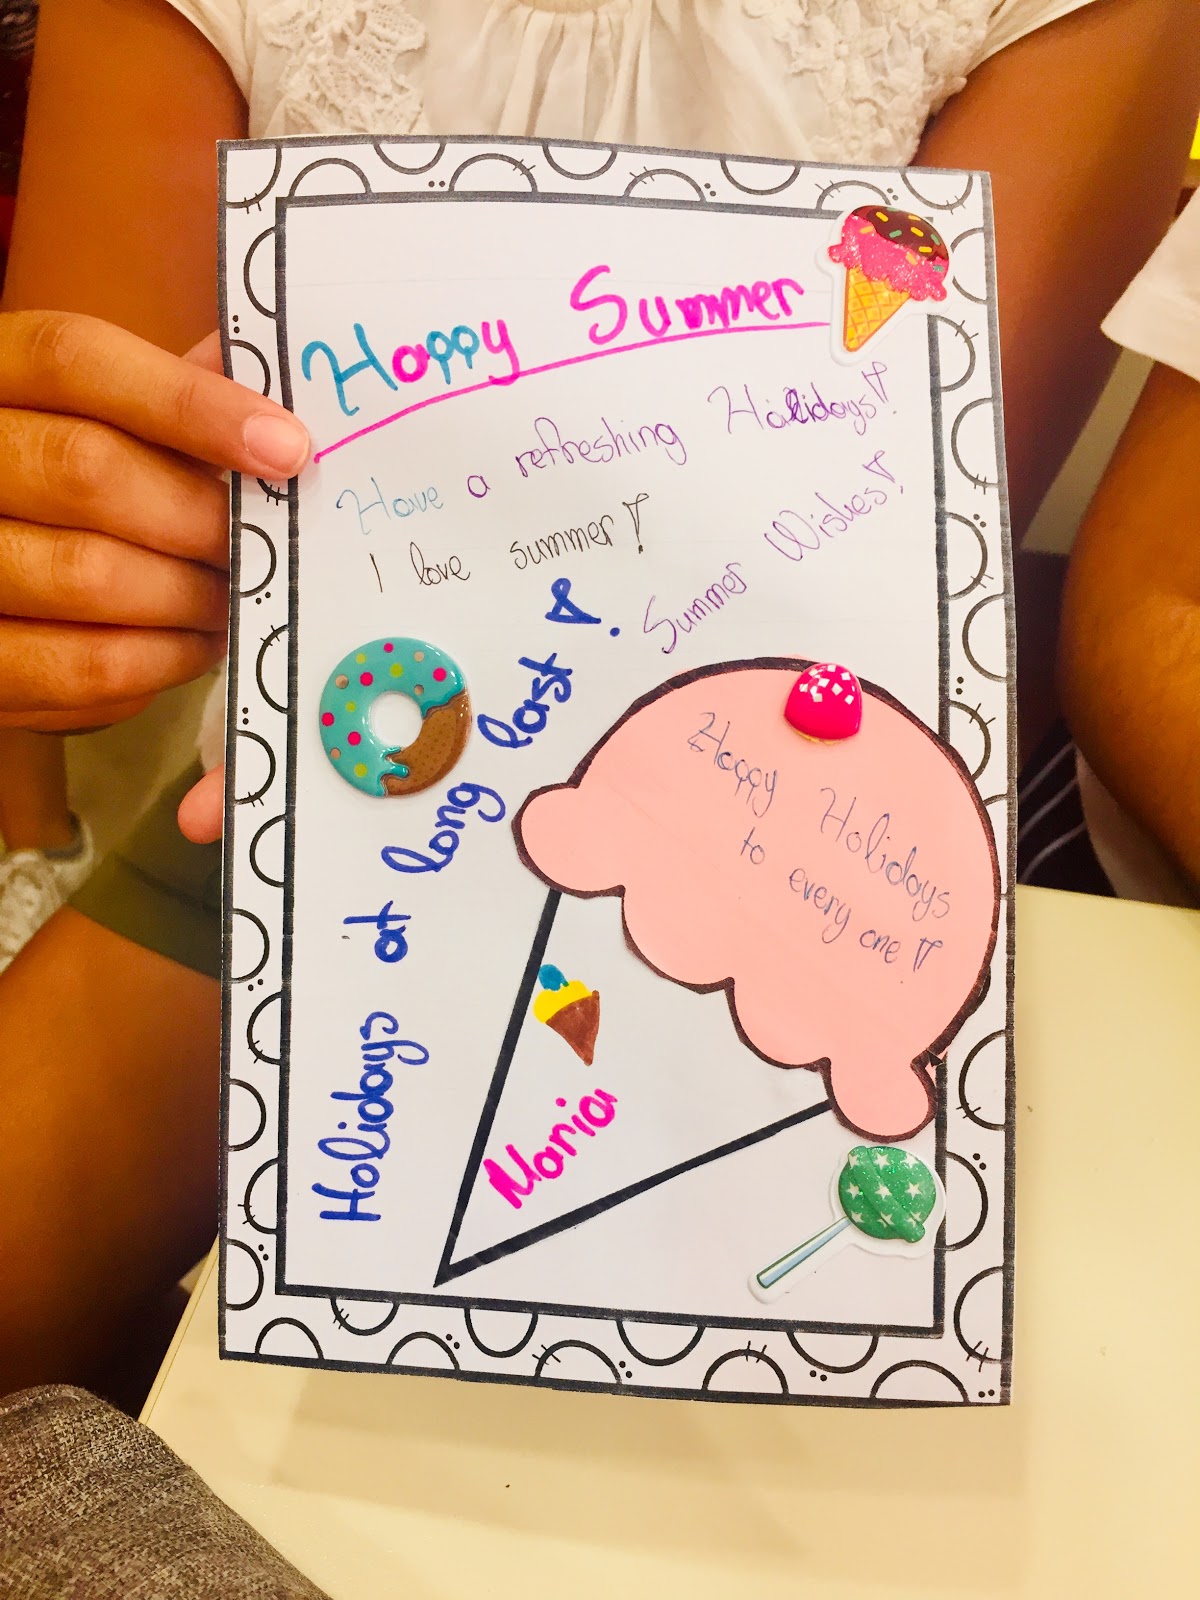 Happy Summer
Have a refreshing Holidays!
I love summer!
Summer Wishes!
Holidays at long last!
Happy Holidays
to every one!
Maria